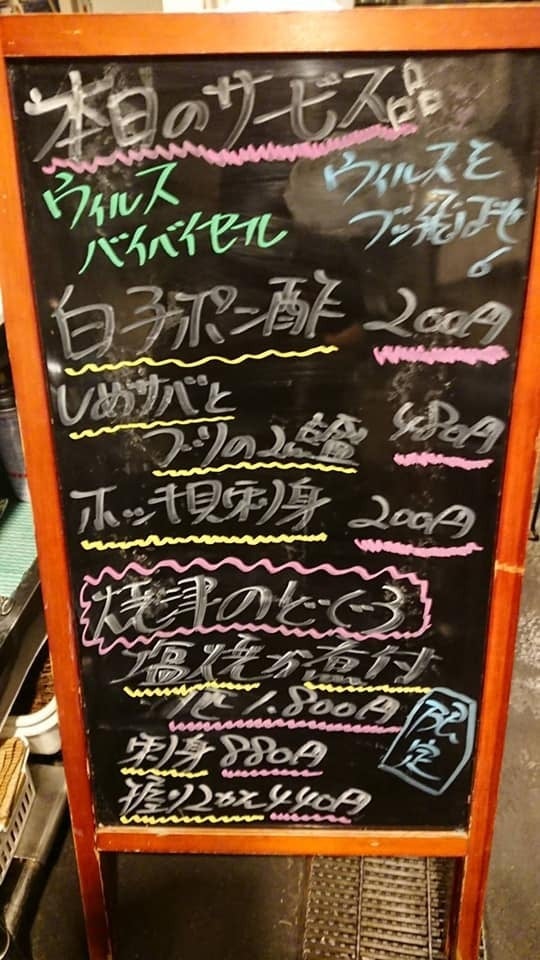 本日のサービス品
ウィルス
バイバイセール
ウィルスを
ブッ飛ばせ
白子ポン酢 200円
しめサバと
ブリの2点盛 480円
ホッキ貝刺身 200円
焼津のどぐろ
塩焼か煮付
1.800円
限定
刺身 880円
握り2かん 440円